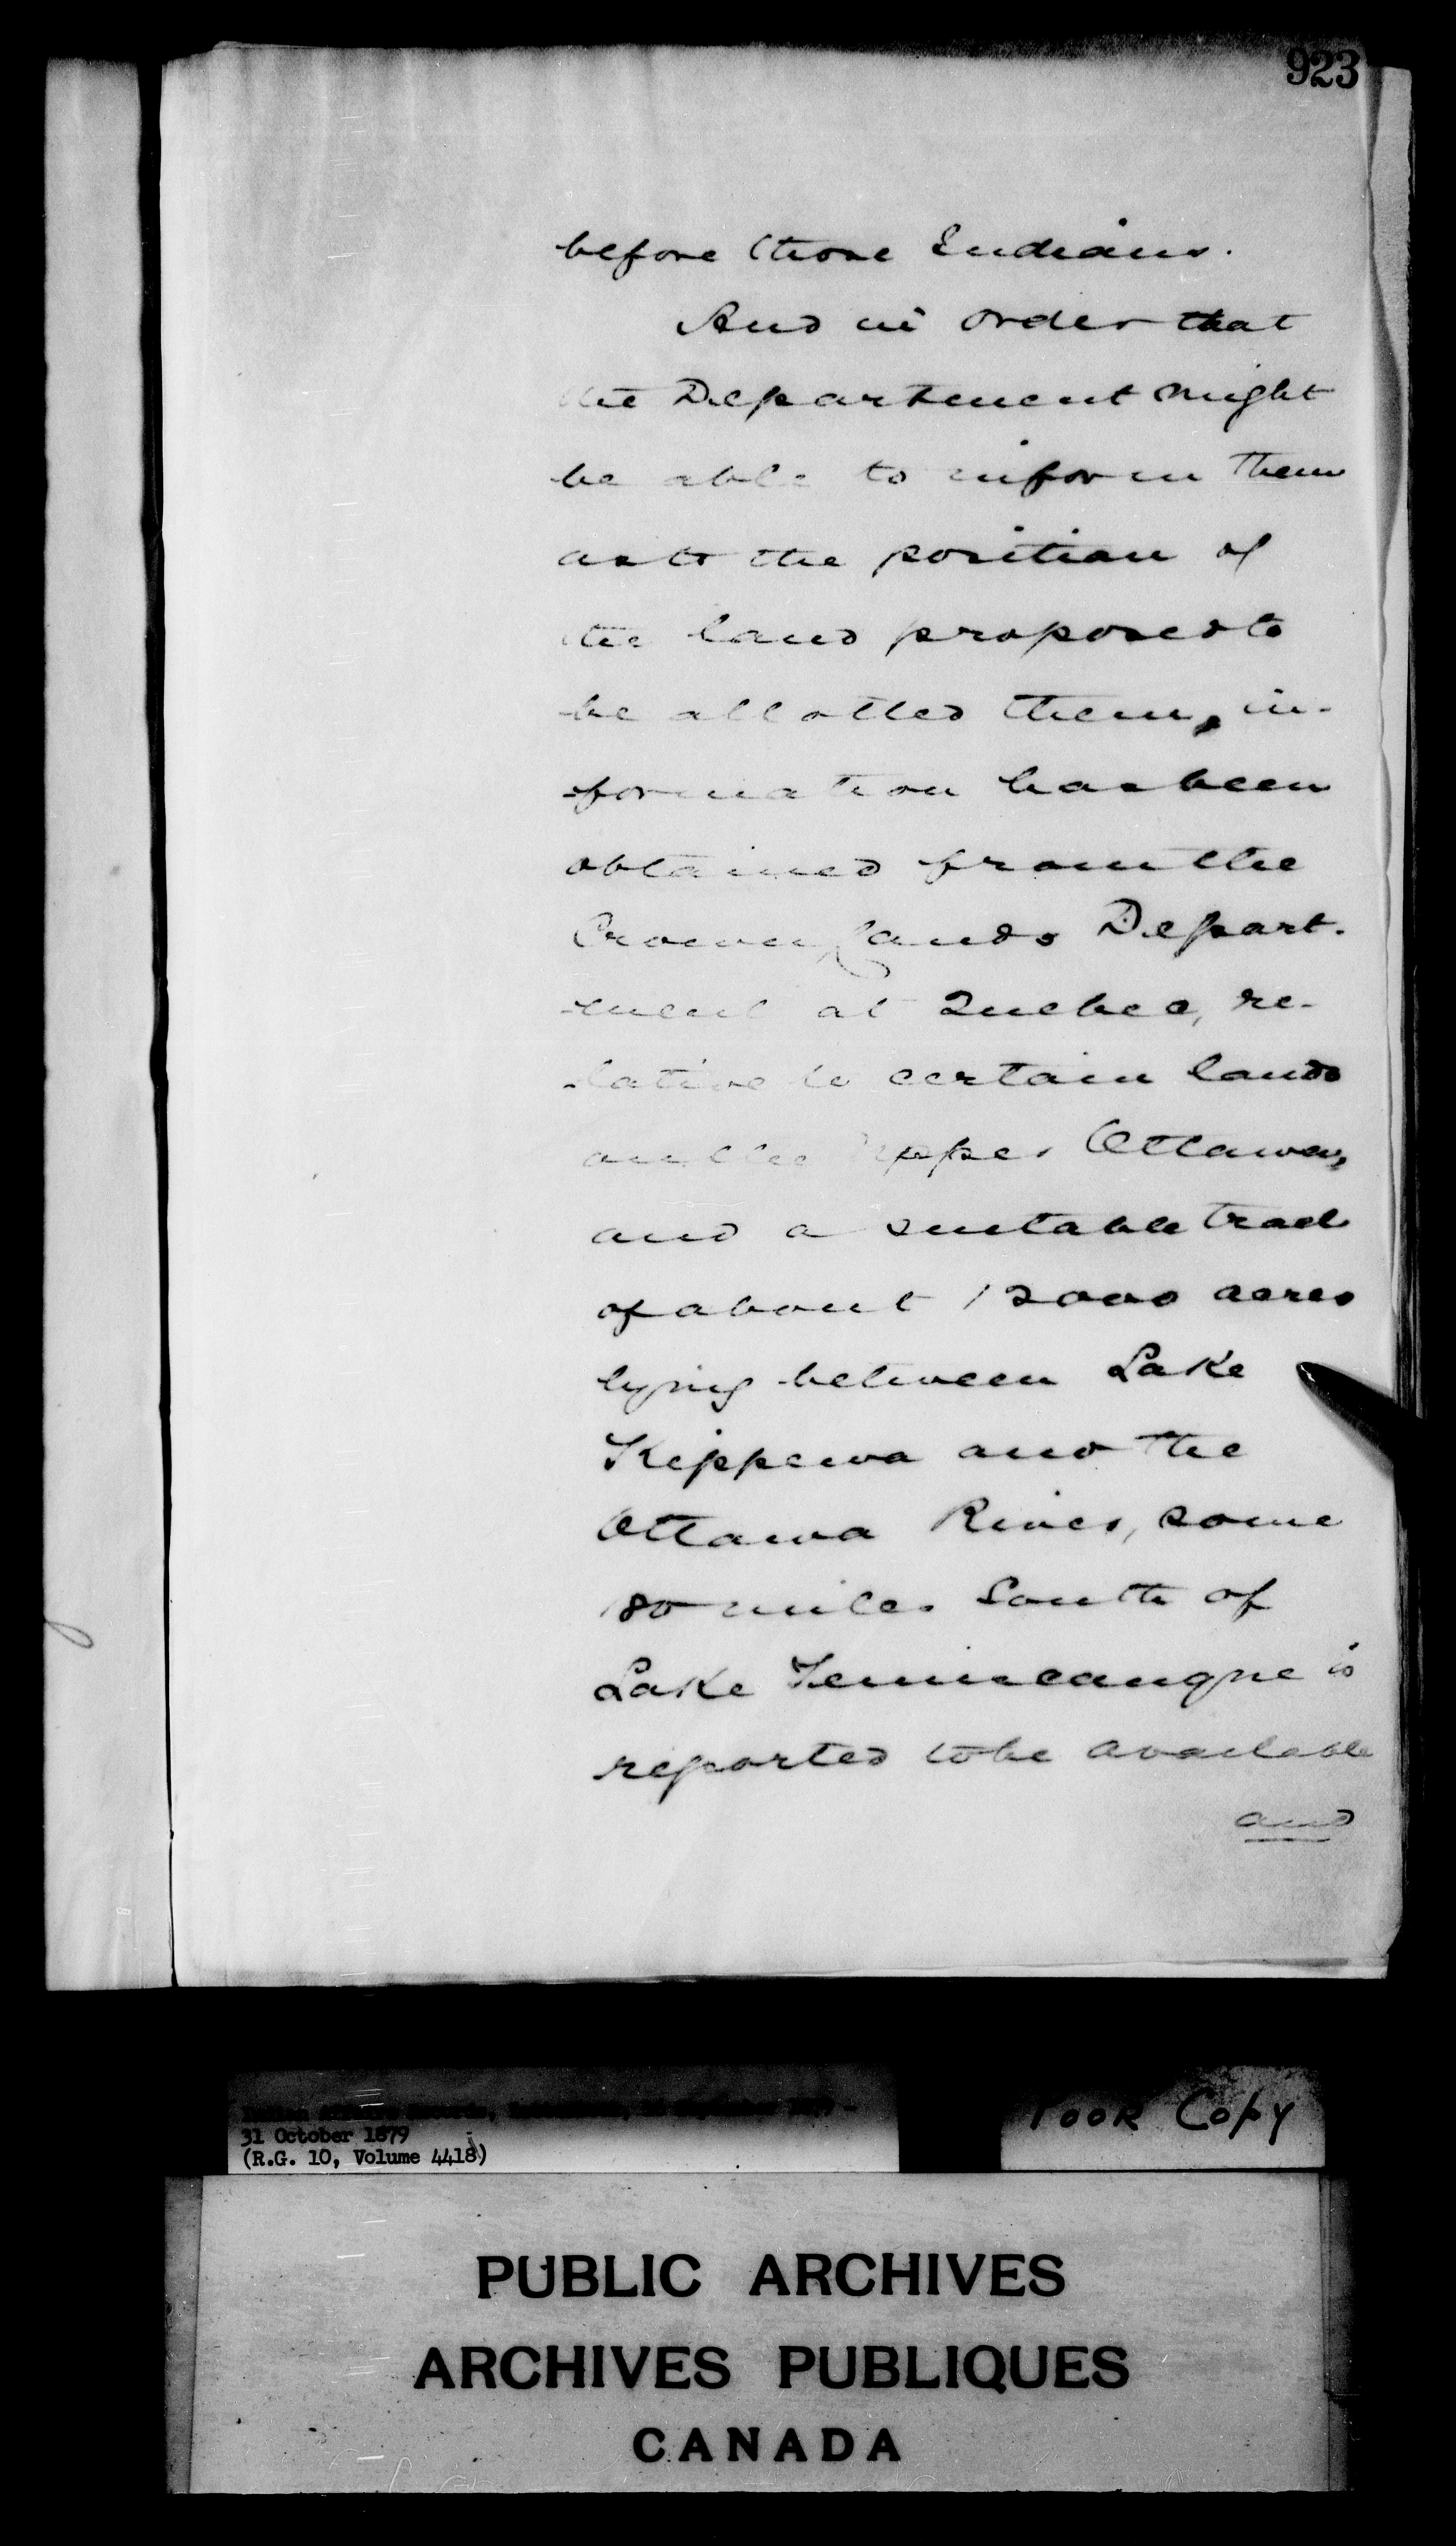 923
before those Indians.
And in order that
the Department might
be able to inform them
as to the position of
the land proposed to
be allotted them, in-
-formation has been
obtained from the
Crown Lands Depart-
-ment at Quebec, re-
-lative to certain lands
on the Upper Ottawa,
and a suitable tract
of about 12000 acres
lying between Lake
Kippewa and the
Ottawa River, some
80 miles South of
Lake Temiscangue is
reported to be available
and
31 October 1879
(R.G. 10, Volume 4418)
Poor Copy
PUBLIC ARCHIVES
ARCHIVES PUBLIQUES
CANADA